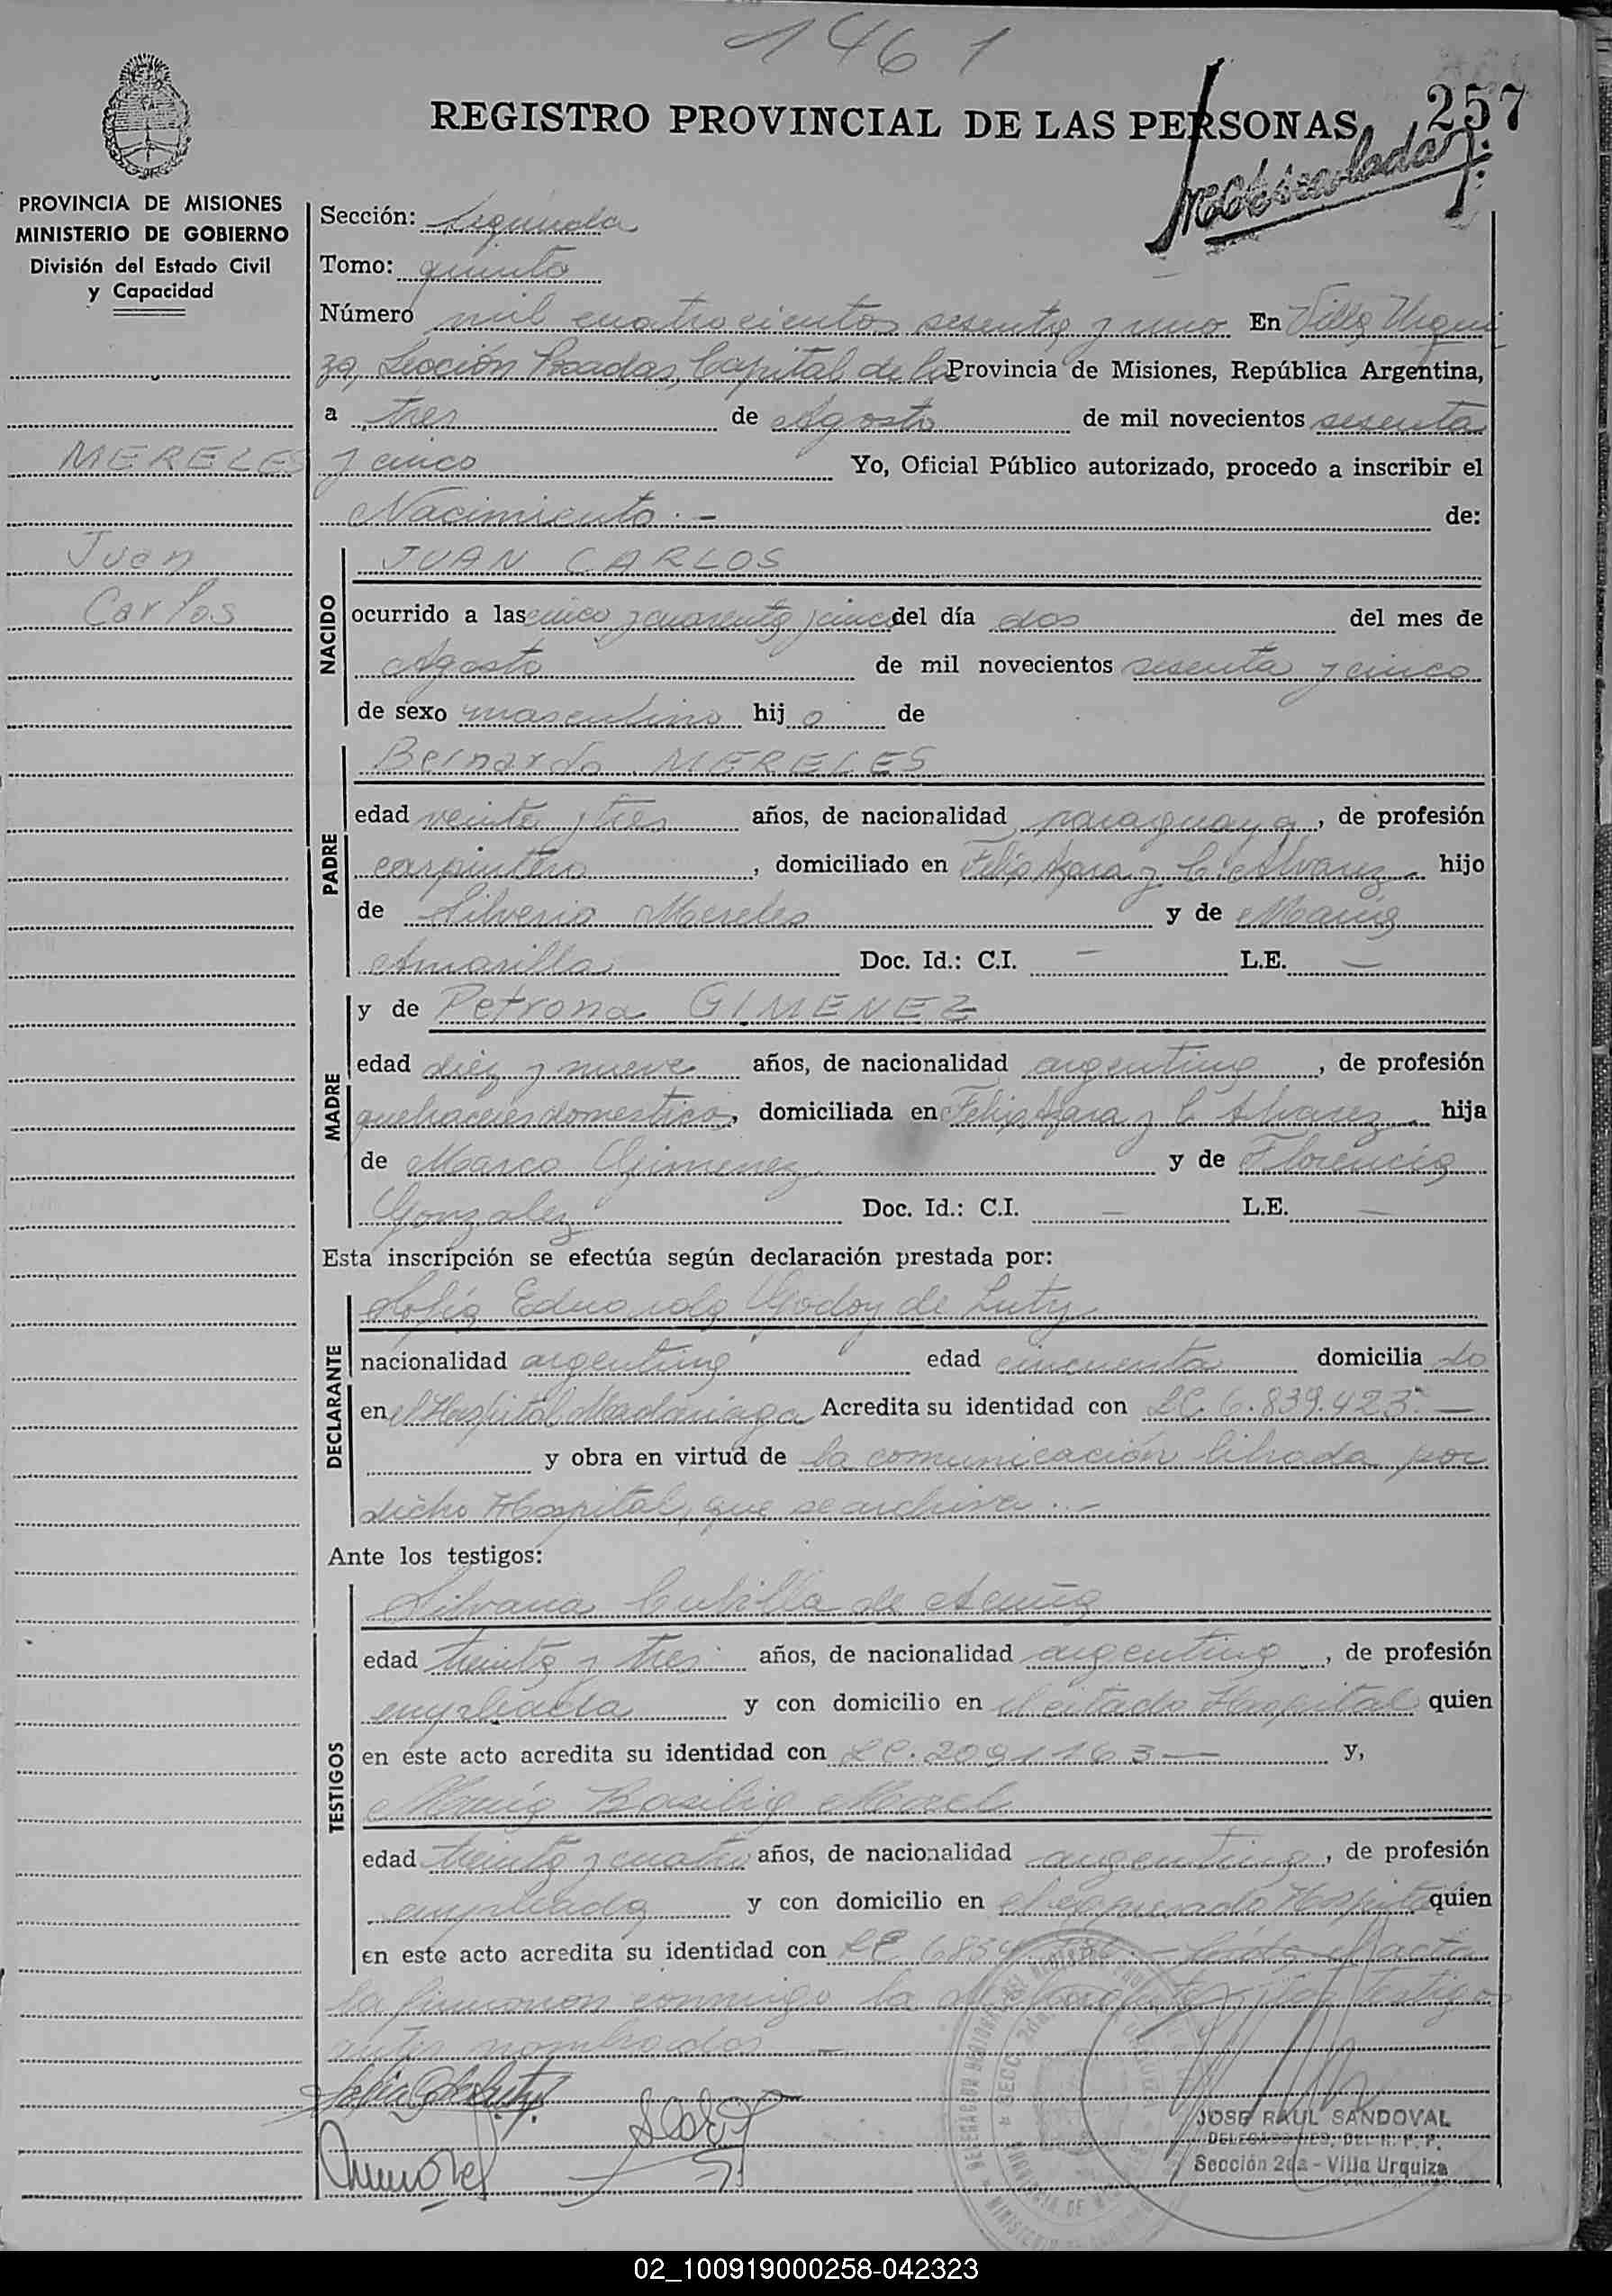 1461
257
REGISTRO PROVINCIAL DE LAS PERSONAS
PROVINCIA DE MISIONES
MINISTERIO DE GOBIERNO
División del Estado Civil
y Capacidad
MERELES
Juan
Carlos
Sección: segunda
Tomo: quinto
Número mil cuatrocientos sesenta y uno En Villa Urqui
za, Sección Posadas, Capital de la Provincia de Misiones, República Argentina,
a tres de Agosto de mil novecientos sesenta
y cinco Yo, Oficial Público autorizado, procedo a inscribir el
Nacimiento.- de:
NACIDO
JUAN CARLOS
ocurrido a las cinco y cuarenta y cinco del día dos del mes de
Agosto de mil novecientos sesenta y cinco
de sexo masculino hij o de
PADRE
Bernardo MERELES
edad veinte y tres años, de nacionalidad paraguaya, de profesión
carpintero, domiciliado en Felix Azara y C. Alvarez hijo
de Silverio Mereles y de María
Amarilla Doc. Id.: C.I. — L.E. —
MADRE
y de Petrona GIMENEZ
edad diez y nueve años, de nacionalidad argentina, de profesión
quehaceres domestico, domiciliada en Felix Azara y C. Alvarez hija
de Marco Gimenez y de Florencia
Gonzalez Doc. Id.: C.I. — L.E. —
Esta inscripción se efectúa según declaración prestada por:
DECLARANTE
Sofía Eduarda Godoy de Luty
nacionalidad argentina edad cincuenta domicilia do
en el Hospital Madariaga Acredita su identidad con LC. 6.839.423.—
y obra en virtud de la comunicación librada por
dicho Hospital, que se archiva.-
Ante los testigos:
TESTIGOS
Silvana Cubilla de Acuña
edad treinta y tres años, de nacionalidad argentina, de profesión
empleada y con domicilio en el citado Hospital quien
en este acto acredita su identidad con LC. 2091163— y,
María Basilia Morel
edad treinta y cuatro años, de nacionalidad argentina, de profesión
empleada y con domicilio en el expresado Hospital quien
en este acto acredita su identidad con LC 6839 Leída el acta
la firmaron conmigo la declarante y los testigos
antes nombrados.—
JOSE RAUL SANDOVAL
DELEGADO REG. DEL R. P. P.
Sección 2da - Villa Urquiza
02_100919000258-042323